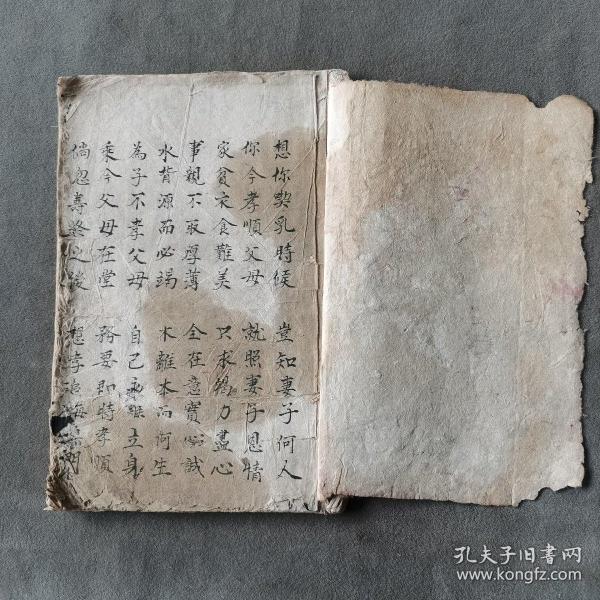 想你契乳時候 豈知妻子何人
你今孝順父母 就照妻子恩情
家貧衣食難美 只求竭力盡心
事親不取厚薄 全在意實心誠
水背源而必竭 木離本而何生
為子不孝父母 自己 立身
乘今父母在堂 務要即時孝順
倘忽壽終之後 想孝
孔夫子旧書网
www.kongfz.com